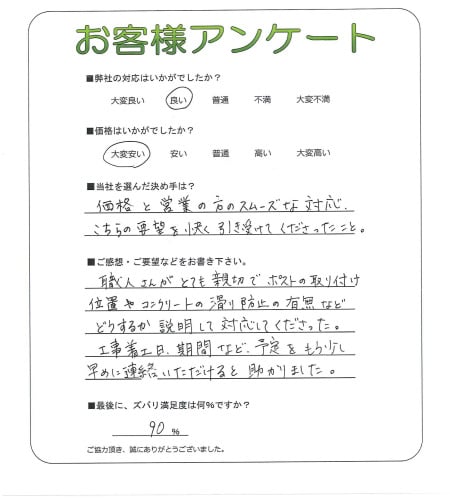 お客様アンケート
■弊社の対応はいかがでしたか?
大変良い 良い 普通 不満 大変不満
■価格はいかがでしたか?
大変安い 安い 普通 高い 大変高い
■当社を選んだ決め手は?
価格と営業の方のスムーズな対応、
こちらの要望を快く引き受けてくださったこと。
■ご感想・ご要望などをお書き下さい。
職人さんがとても親切でポストの取り付け
位置やコンクリートの滑り防止の有無など
どうするか説明して対応してくださった。
工事着工日、期間など、予定をもう少し
早めに連絡いただけると助かりました。
■最後に、ズバリ満足度は何%ですか?
90 %
ご協力頂き、誠にありがとうございました。